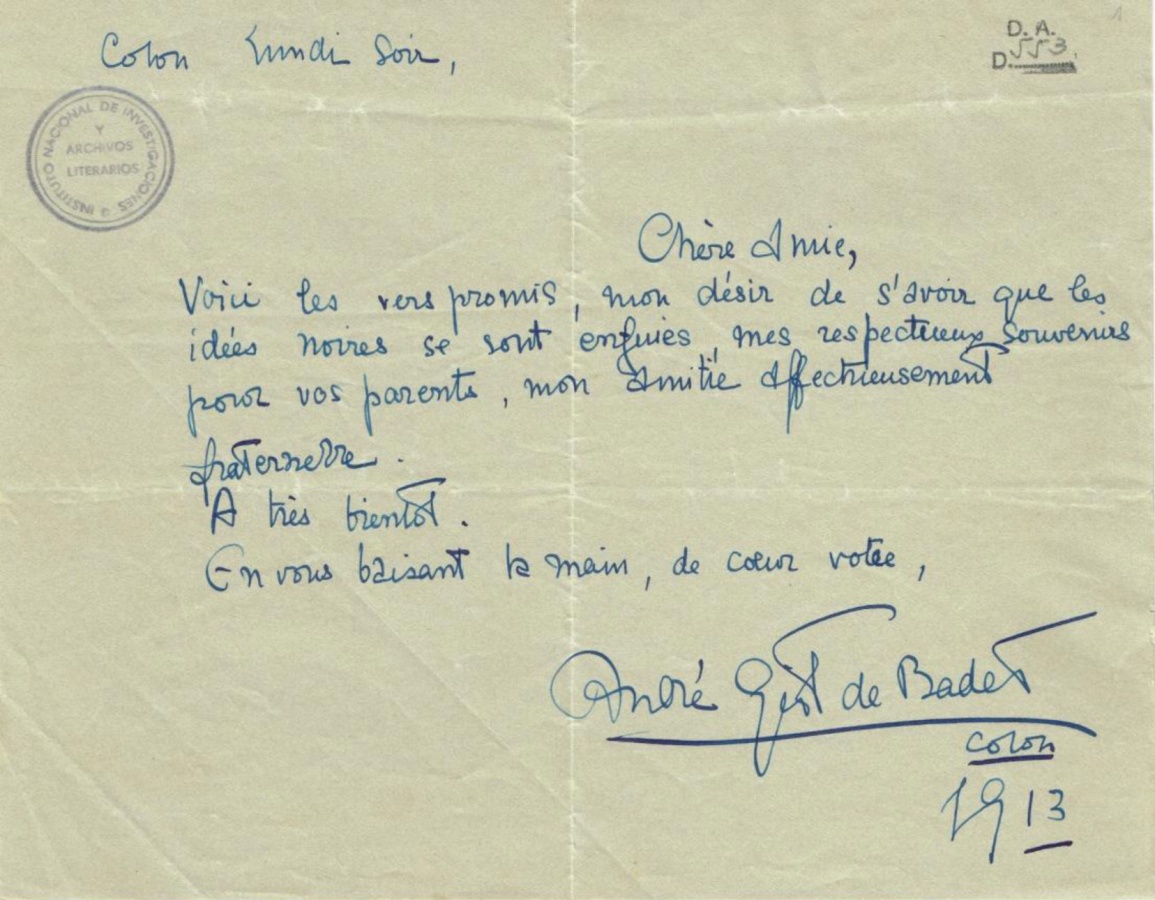 1
D. A.
D. 553
Colon Lundi Soir,
INSTITUTO NACIONAL DE INVESTIGACIONES
Y
ARCHIVOS
LITERARIOS
Chère Amie,
Voici les vers promis, mon désir de s'avoir que les
idées noires se sont enfuies, mes respectueux souvenirs
pour vos parents, mon Amitié Affectueusement
fraternelle.
A très bientôt.
En vous baisant la main, de cœur votre,
André Gist de Badet
Colon
1913